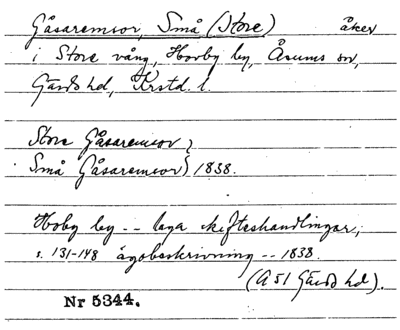 Gåsaremsor, Små (Store) åker
i Store vång, Hovby by, Åsums sn,
Gärds hd, Krstd. l.
Store Gåsaremsor,
Små Gåsaremsor) 1838.
Hoby by -- laga skifteshandlingar,
s. 131-148 ägobeskrivning -- 1838.
(A 51 Gärds hd).
Nr 5344.